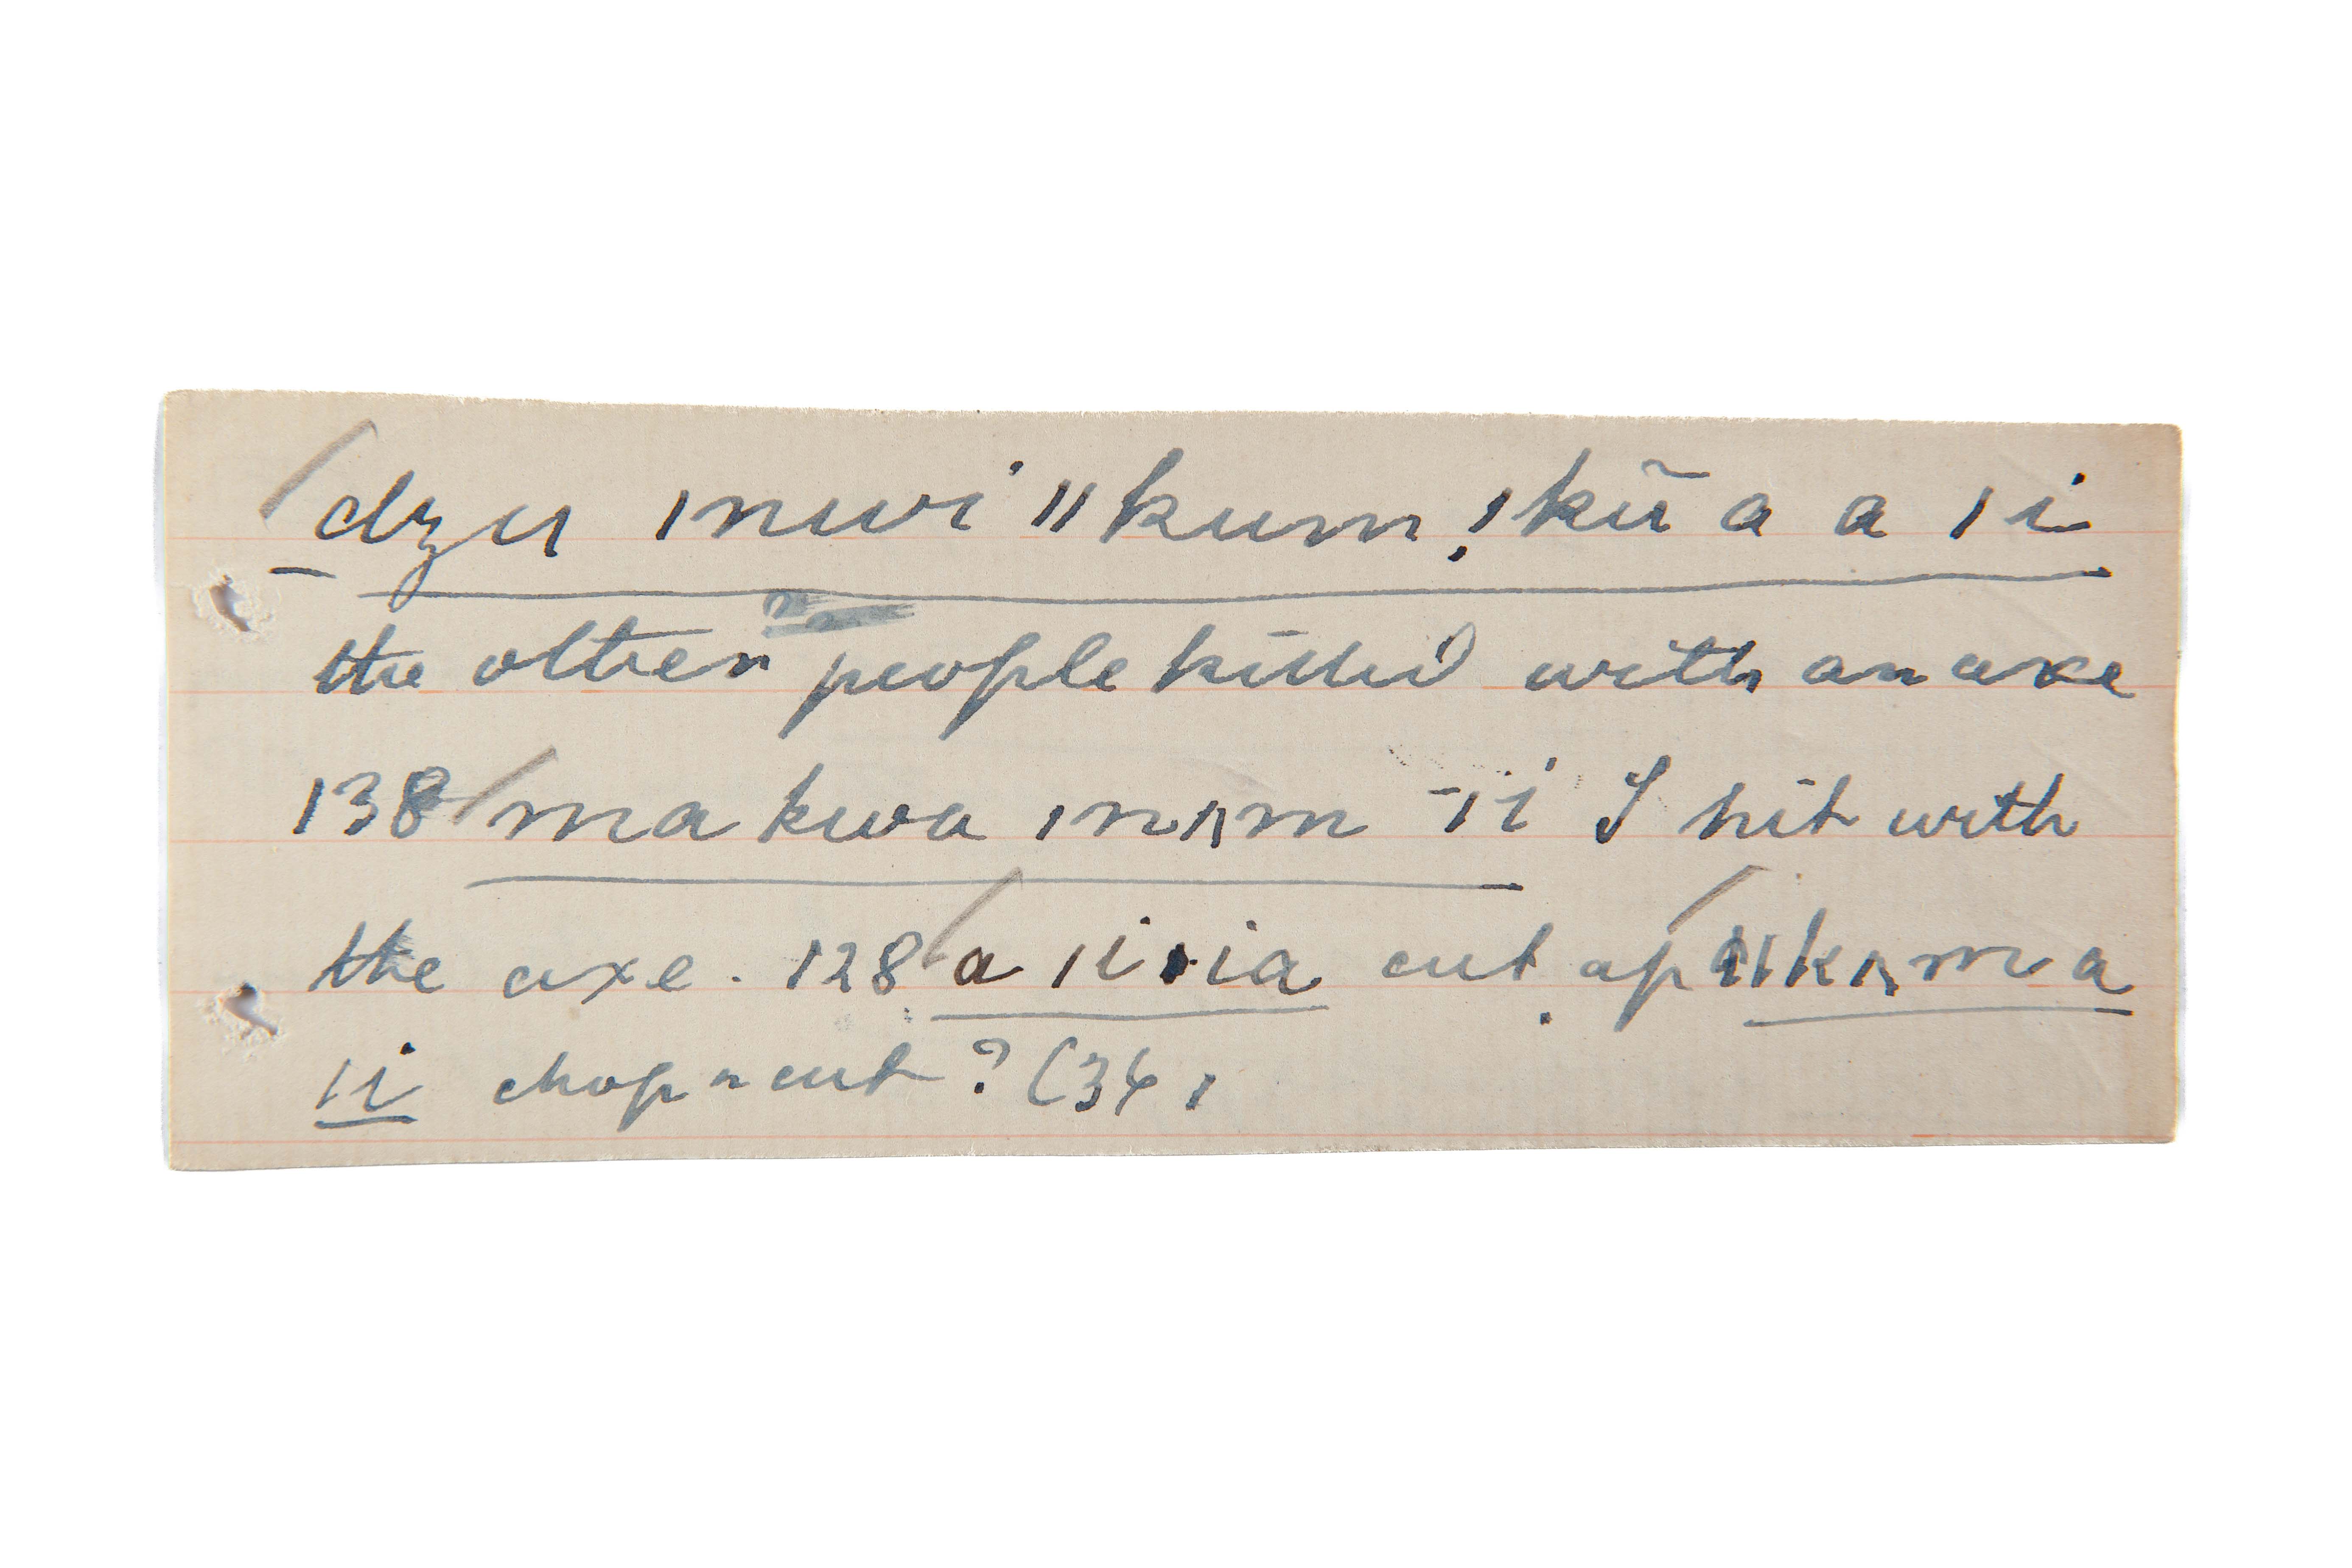 /dzu ǀnwi ǁkum, ǀkũ a a ǀi
the other people killed with an axe
138/ma kwa ǀnʌm -ǀi I hit with
the axe. 128/a ǀiǀia cut up/ǁkʌm a
ǀi chop or cut? (34,